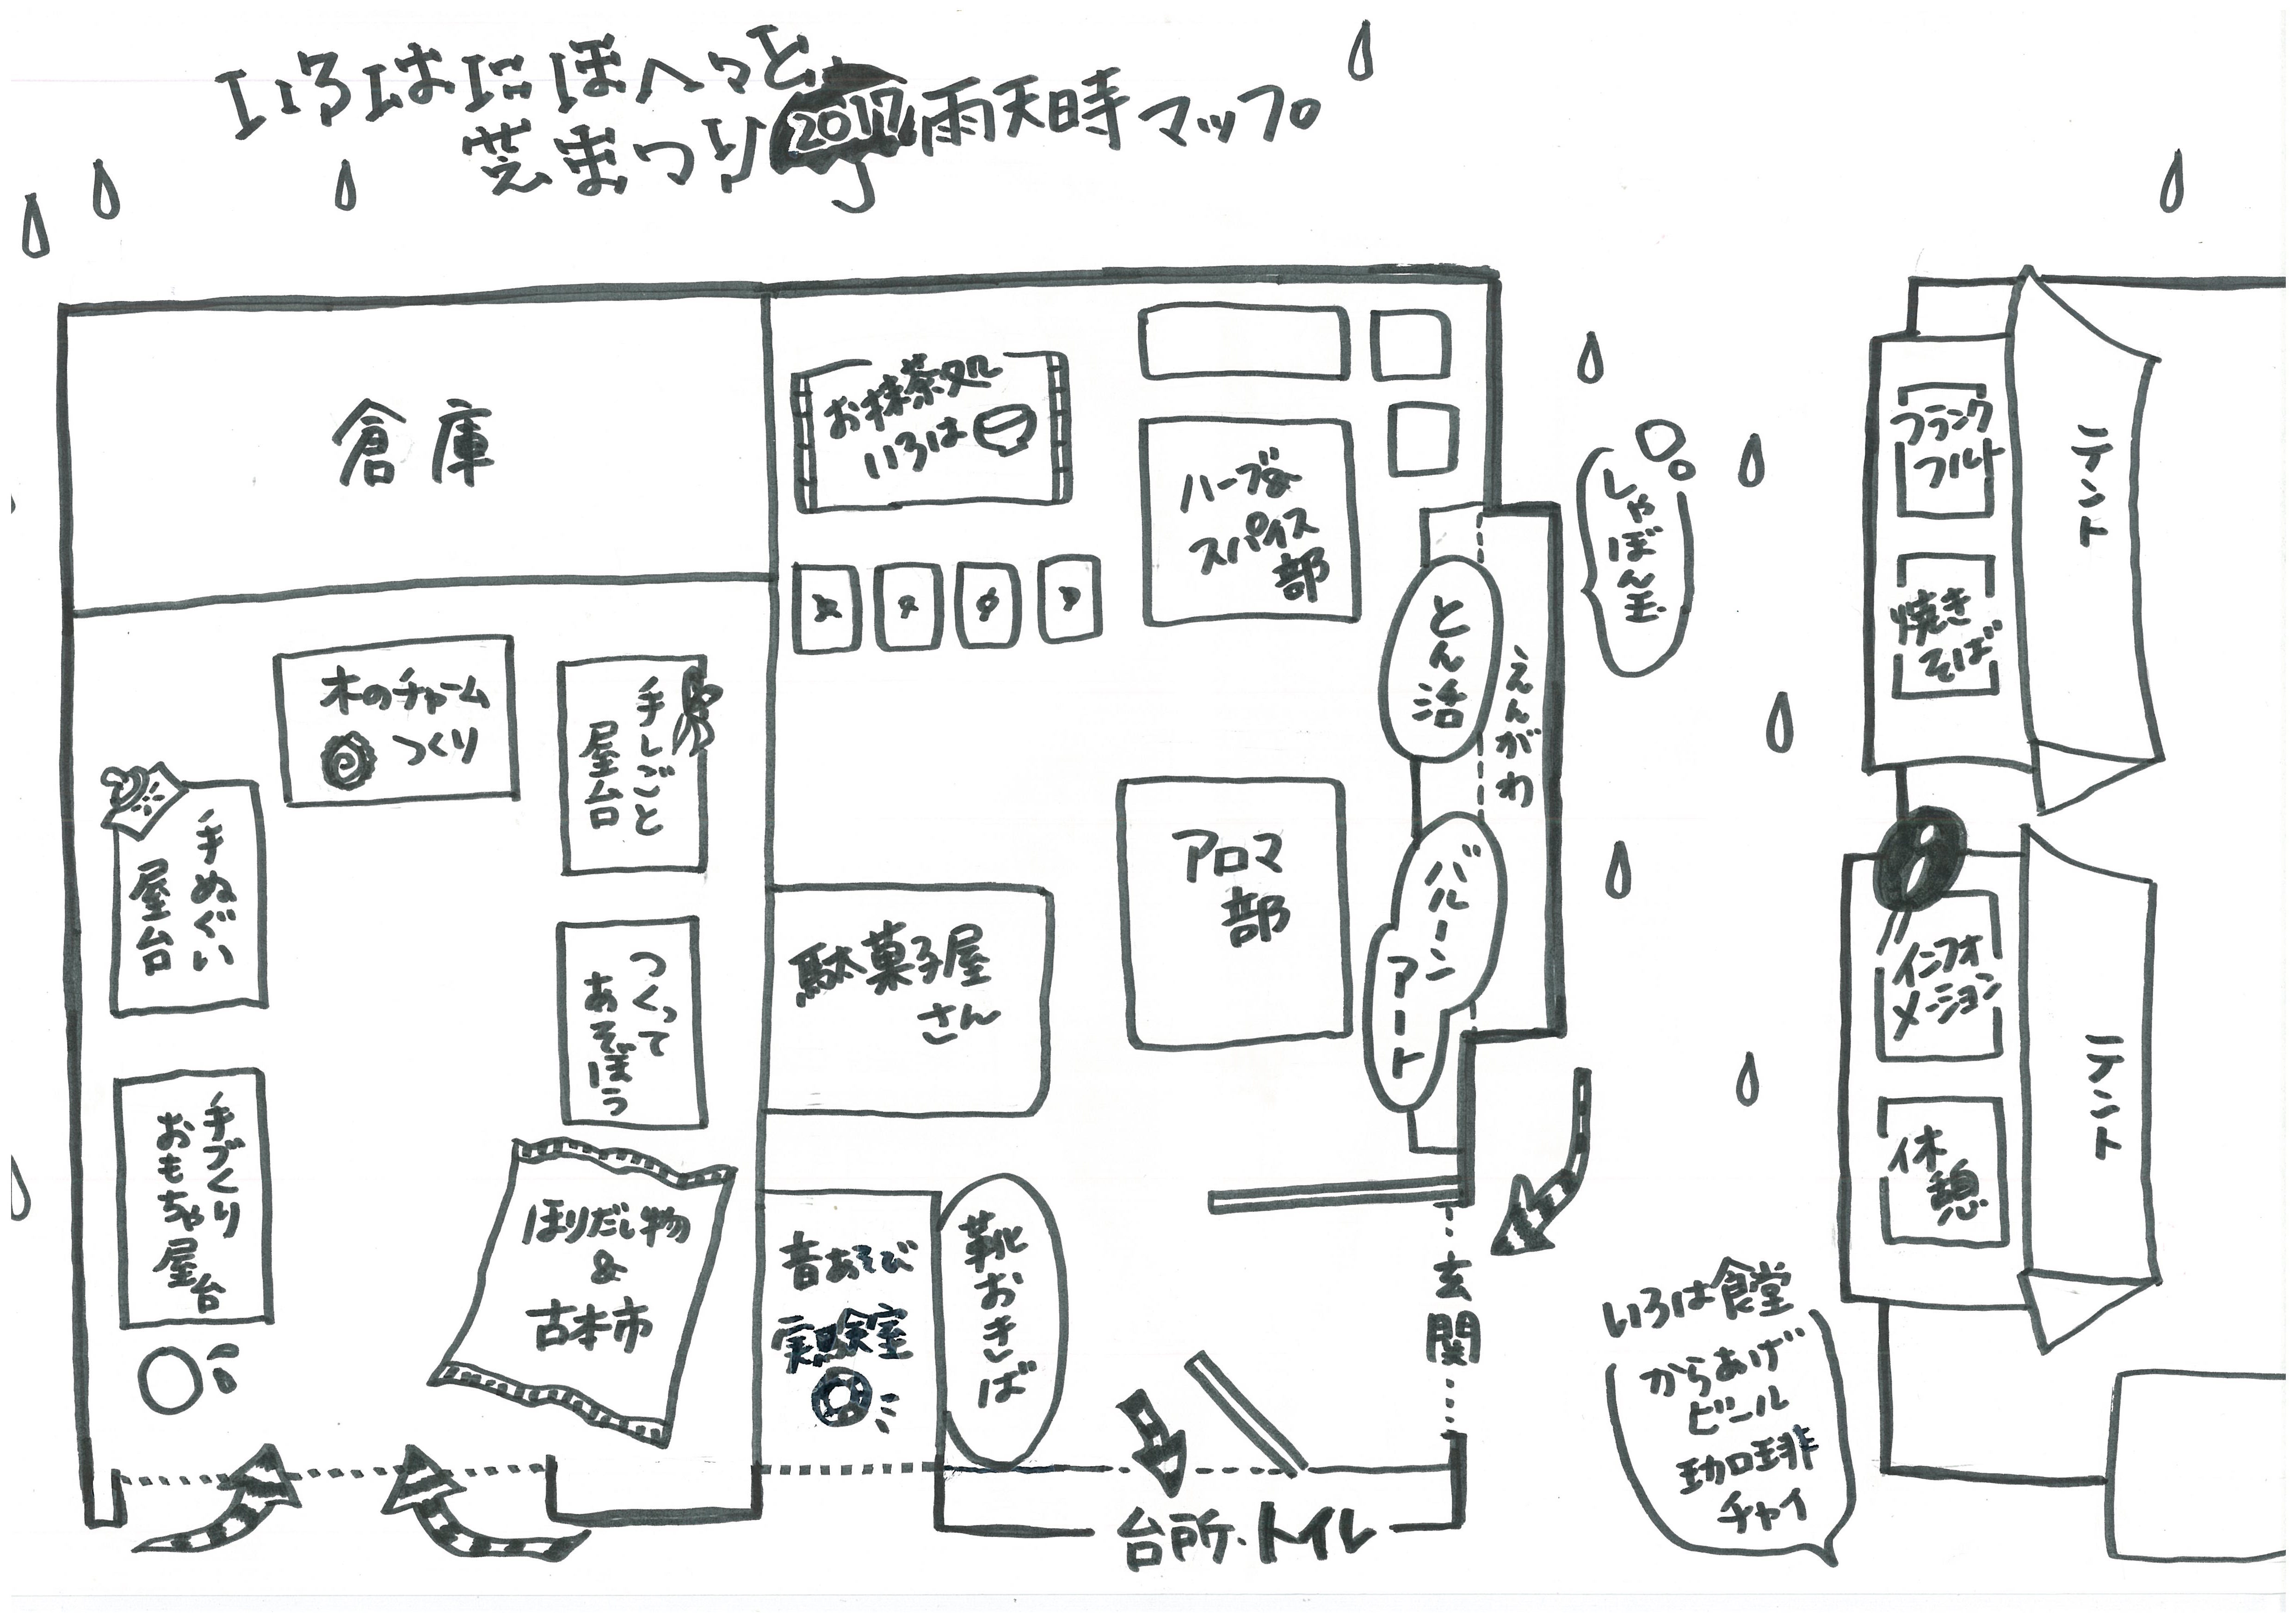 いろはにほへっと
芝まつり 2017 雨天時マップ
倉庫
お抹茶処
いろは
ハーブ&
スパイス
部
とん活
えんがわ
しゃぼん玉
フランク
フルト
テント
焼き
そば
木のチャーム
つくり
手しごと
屋台
手ぬぐい
屋台
つくって
あそぼう
駄菓子屋
さん
アロマ
部
バルーン
アート
インフォ
メーション
テント
休憩
手づくり
おもちゃ屋台
ほりだし物
&
古本市
昔あそび
実験室
靴おきば
玄関
台所・トイレ
いろは食堂
からあげ
ビール
珈琲
チャイ